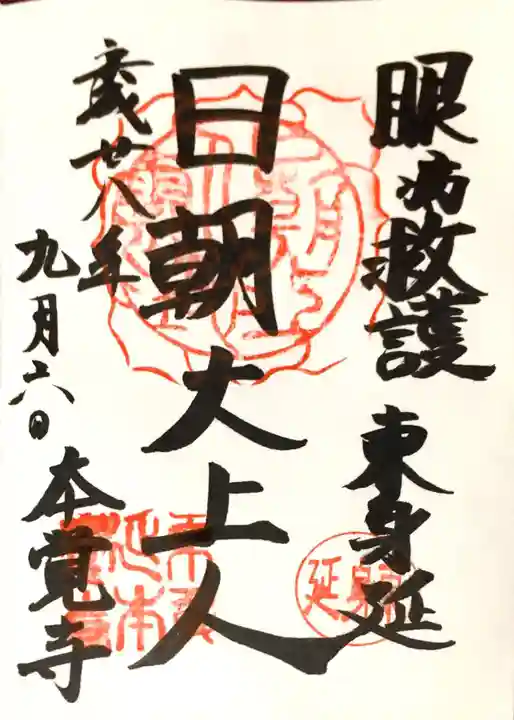 眼病救護 東身延
日朝大上人
平成廿八年
九月六日 本覚寺